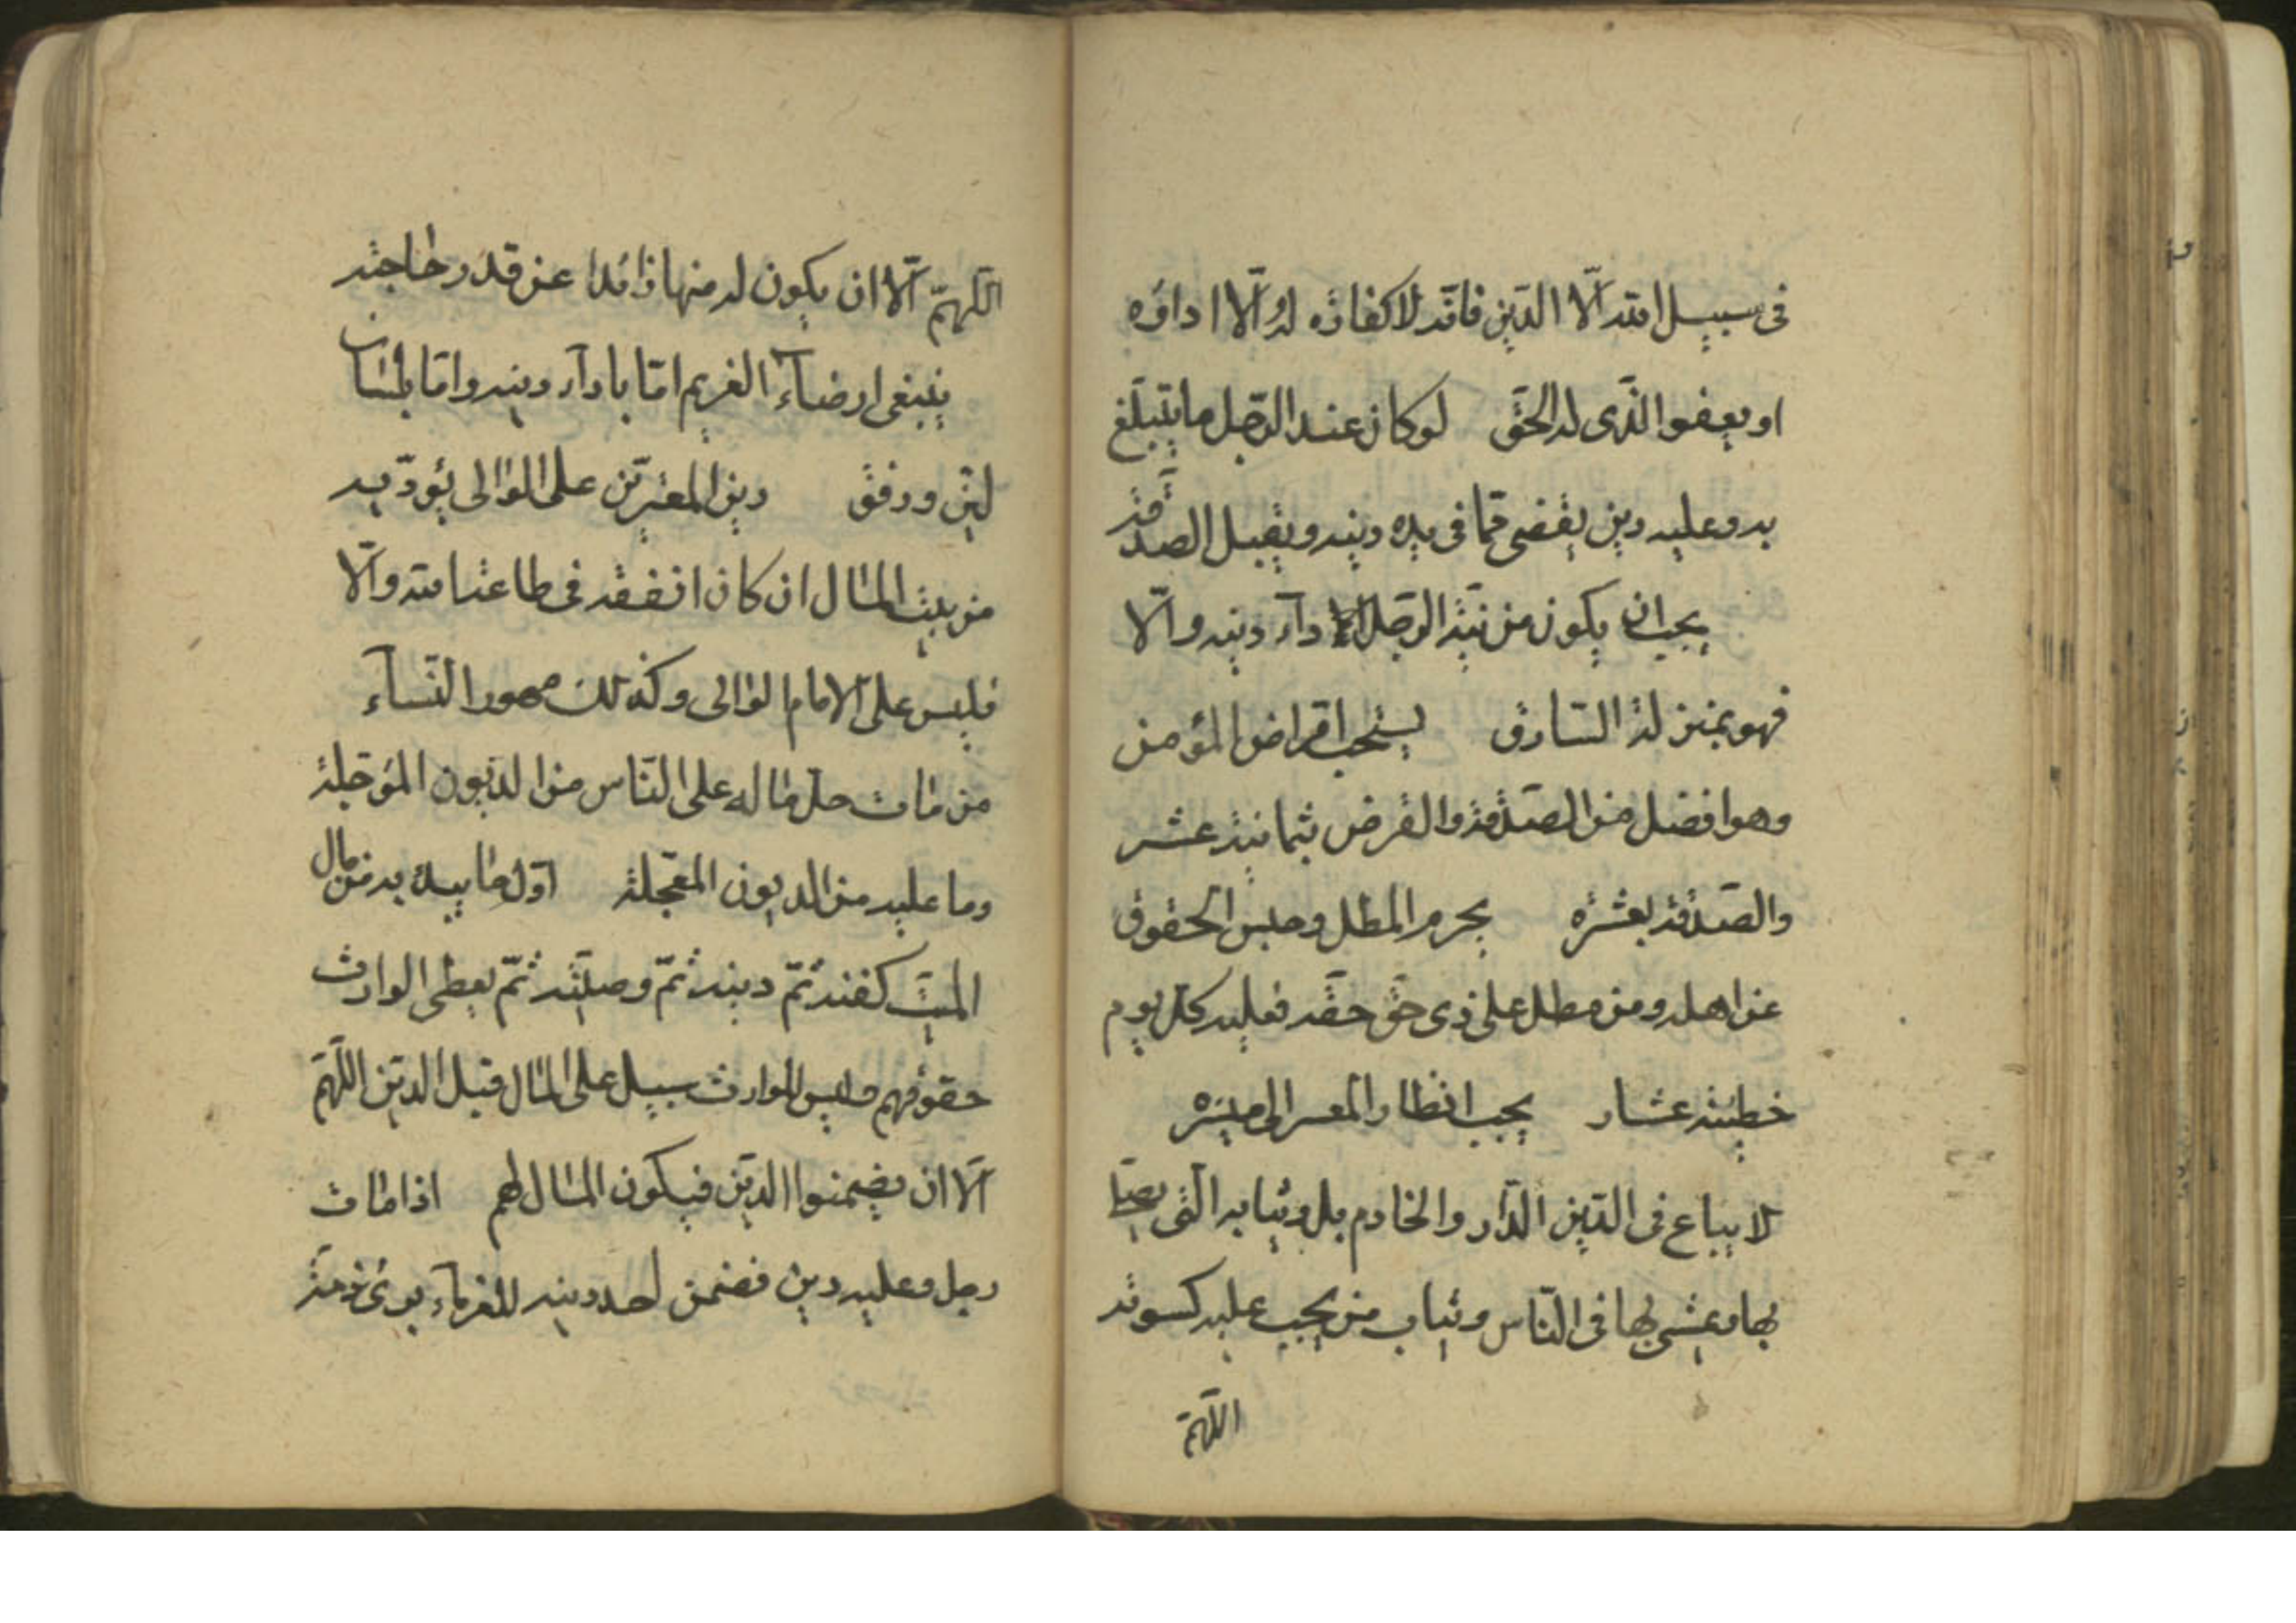 فى سبيل الله الّا الدّين فانّه لا كفارة له الّا اداؤه
او يعفو الذّى له الحقّ لو كان عند الرّجل ما يتبلّغ
به وعليه دين يقضى ممّا فى يده دينه ويقبل الصّدقة
يجب ان يكون من نيّة الرّجل الاداء دينه والّا
فهو بمنزلة السّارق يستحب اقراض المؤمن
وهو افضل من الصّدقة والقرض بثمانية عشر
والصّدقة بعشرة يحرم المطل وحبس الحقوق
عن اهله ومن مطل على ذى حقّ حقّه فعليه كلّ يوم
خطيئة عشار يجب انظار المعسر الى ميسرة
لا يباع فى الدّين الدّار والخادم بل وثيابه الّتى يصلّى
بها ويمشى بها فى النّاس وثياب من يجب عليه كسوته
اللّهمّ
اللّهمّ الّا ان يكون له منها زائدا عن قدر حاجته
ينبغى ارضاء الغريم امّا باداء دينه وامّا بلسان
ليّن ورفق دين المعسرين على الوالى يؤدّيه
من بيت المال ان كان انفقه فى طاعة الله والّا
فليس على الامام الوالى وكذلك مهور النّساء
من مات حلّ ماله على النّاس من الديون المؤجلة
وما عليه من الديون المعجّلة اوّل ما يبدء به من مال
الميّت كفنه ثمّ دينه ثمّ وصيّته ثمّ يعطى الوارث
حقوقهم وليس للوارث سبيل على المال قبل الدين اللّهمّ
الّا ان يضمنوا الدين فيكون المال لهم اذا مات
رجل وعليه دين فضمن احد دينه للغرماء برئ ذمّة